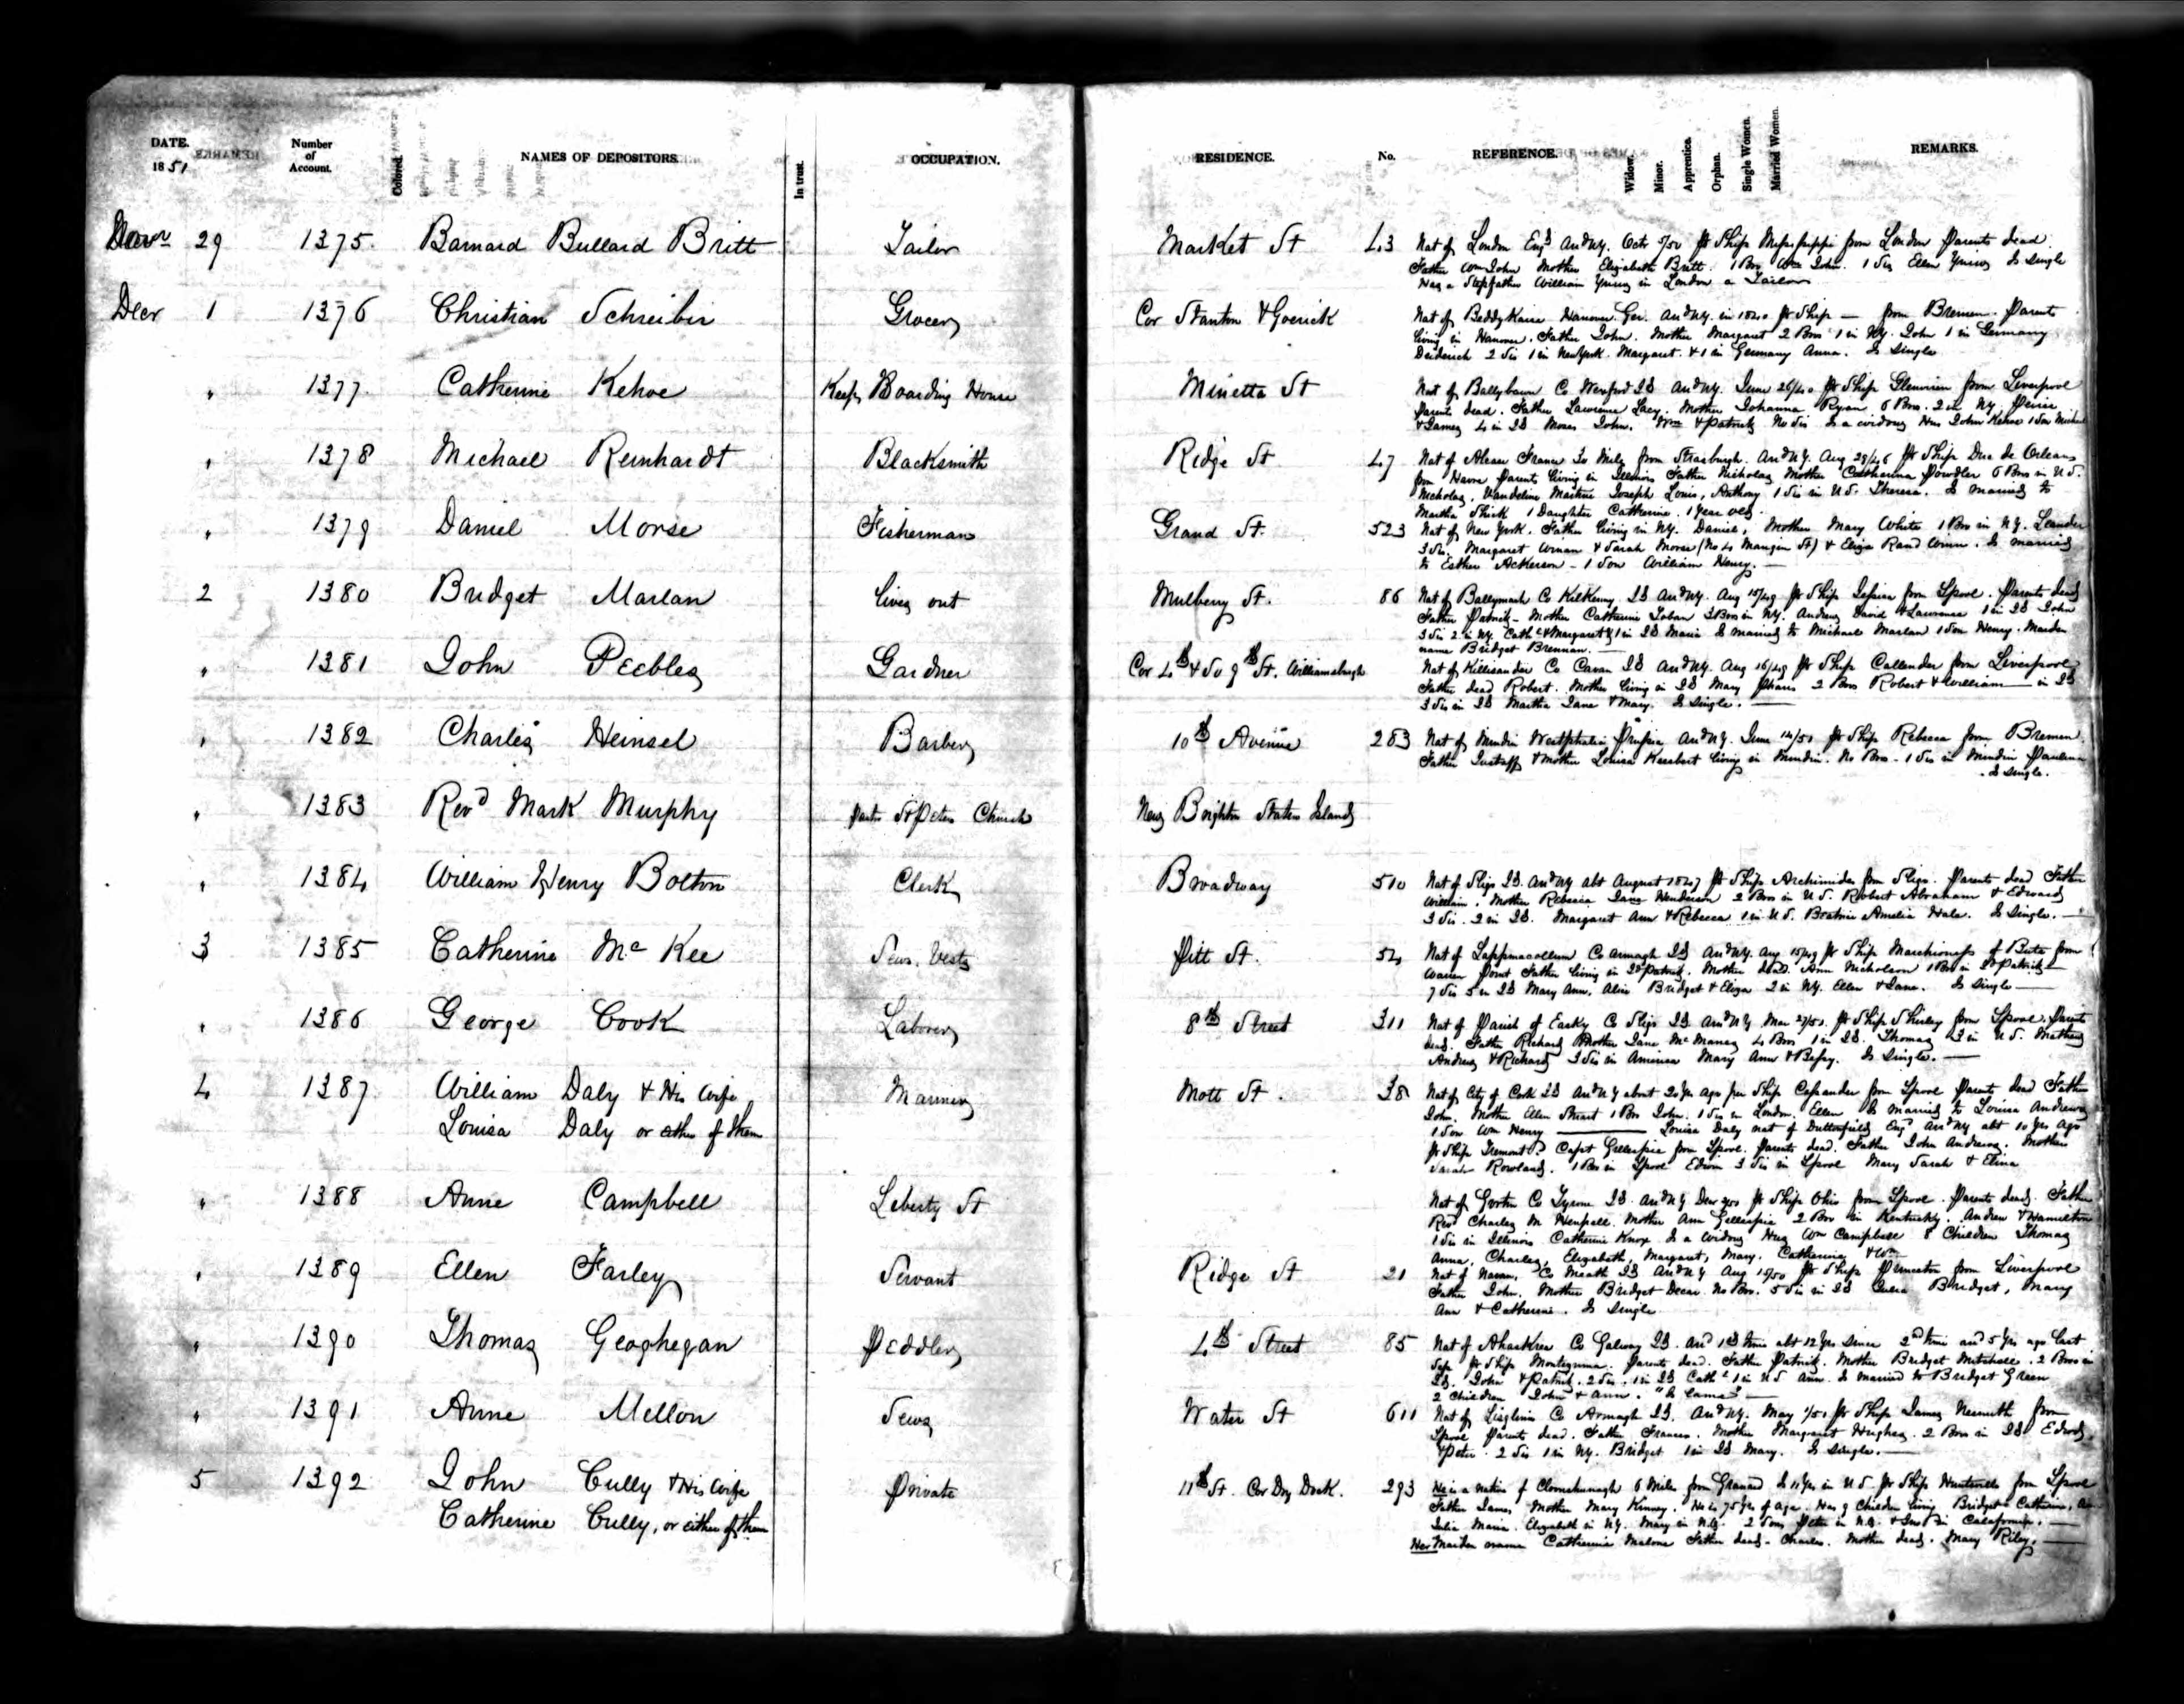 DATE.
1851
Number
of
Account.
Colored.
NAMES OF DEPOSITORS.
In trust.
OCCUPATION.
RESIDENCE.
No.
REFERENCE.
Widow.
Minor.
Apprentice.
Orphan.
Single Women.
Married Women.
REMARKS.
Novr 29 1375. Barnard Bullard Britt Tailor Market St 43
Nat of London Engd Arrd NY. Octr 5/50 pr Ship Mississippi from London Parents dead.
Father Wm John Mother Elizabeth Britt. 1 Bro Wm John. 1 Sis Ellen Young Is single
Has a Stepfather William Young in London a Tailor
Decr 1 1376 Christian Schreiber Grocer Cor Stanton & Goerick
Nat of Hanover Ger. Arrd NY. in 1840 pr Ship — from Bremen. Parents
living in Hanover. Father John. Mother Margaret 2 Bros 1 in NY. John 1 in Germany
Deiderich 2 Sis 1 in New York. Margaret. & 1 in Germany Anna. Is Single
" 1377. Catherine Kehoe Keeps Boarding House Minetta St
Nat of Ballybawn Co Wexford Id Arrd NY. June 26/40 pr Ship Glenview from Liverpool
Parents dead. Father Lawrence Lacy. Mother Johanna Ryan 6 Bros. 2 in NY
& James 4 in Id Moses John. Wm & Patrick No Sis Is a widow Hus John Kehoe 1 Son Michael
" 1378 Michael Reinhardt Blacksmith Ridge St 47
Nat of Alsace France 30 Miles from Strasburgh. Arrd NY. Aug 29/46 pr Ship Duc de Orleans
from Havre Parents living in Illinois Father Nicholas Mother Catharina Powdler 6 Bros in U.S.
Nicholas, Vandeline Martin Joseph Louis, Anthony 1 Sis in U.S. Theresa. Is married to
Martha Shick 1 Daughter Catherine. 1 Year old.
" 1379 Daniel Morse Fisherman Grand St. 523
Nat of New York. Father living in NY. Daniel, Mother Mary White 1 Bro in NY. Leander
3 Sis. Margaret & Sarah Morse (No 4 Mangin St) & Eliza Is married
to Esther Ackerson – 1 Son William Henry. —
2 1380 Bridget Marlan lives out Mulberry St. 86
Nat of Co Kilkenny Id Arrd NY. Aug 15/49 pr Ship from Lpool. Parents dead
Father Patrick – Mother Catherine Toban 3 Bros in NY. Andrew David & Lawrence 1 in Id John
3 Sis 2 in NY. Cathe & Margaret & 1 in Id Maria Is married to Michael Marlan 1 Son Henry. Maiden
name Bridget Brennan. —
" 1381 John Peebles Gardner Cor 4th & So 9th St. Williamsburgh
Nat of Killisandra Co Cavan Id Arrd NY. Aug 16/49 pr Ship Callender from Liverpool
Father dead Robert. Mother living in Id Mary 2 Bros Robert & William — in Id
3 Sis in Id Martha Jane & Mary. Is Single. —
" 1382 Charles Heinsel Barber 10th Avenue 283
Nat of Mindin Westphalia Prussia Arrd NY. June 14/51 pr Ship Rebecca from Bremen
Father Gustaff & Mother Louisa living in Mindin. No Bros – 1 Sis in Mindin Paulina
Is Single.
" 1383 Revd Mark Murphy Pastor St Peters Church New Brighton Staten Island
" 1384 William Henry Bolton Clerk Broadway 510
Nat of Sligo Id. Arrd NY abt August 1847 pr Ship Archimides from Sligo. Parents dead Father
William. Mother Rebecca Jane Henderson 2 Bros in U.S. Robert Abraham & Edward
3 Sis. 2 in Id. Margaret Ann & Rebecca 1 in U.S. Beatrice Amelia Hale. Is Single. —
3 1385 Catherine Mc Kee Sews. Vests Pitt St. 54
Nat of Co Armagh Id Arrd NY. Aug 15/49 pr Ship Marchioness of Bute from
Warren Point Father living in Id Patrick. Mother dead. Ann Nicholson 1 Bro in Id Patrick
7 Sis 5 in Id Mary Ann. Alice Bridget & Eliza 2 in NY. Ellen & Jane. Is Single —
" 1386 George Cook Laborer 8th Street 311
Nat of Parish of Easky Co Sligo Id Arrd NY Mar 27/51. pr Ship Shirley from Lpool. Parents
dead. Father Richard Mother Jane Mc Manas 4 Bros 1 in Id. Thomas 3 in U.S. Mathew
Andrew & Richard 3 Sis in America Mary Ann & Betsy. Is Single. —
4 1387. William Daly & His Wife Mariner Mott St. 38
Louisa Daly or either of them
Nat of City of Cork Id Arrd NY about 20 Yrs ago per Ship from Lpool Parents dead Father
John. Mother Ellen Stuart 1 Bro John. 1 Sis in London. Ellen Is married to Louisa Andrews
1 Son Wm Henry — Louisa Daly nat of Engd Arrd NY abt 10 Yrs ago
pr Ship Tremont. Capt Gillespie from Lpool. Parents dead. Father John Andrews. Mother
Sarah Rowland. 1 Bro in Lpool Edwin 3 Sis in Lpool Mary Sarah & Elina
" 1388 Anne Campbell Liberty St
Nat of Gortin Co Tyrone Id. Arrd NY pr Ship Ohio from Lpool. Parents dead. Father
Revd Charles Mother Ann Gillespie 2 Bros in Kentucky. Andrew & Hamilton
1 Sis in Illinois Catherine Knox Is a widow Hus Wm Campbell 8 Children Thomas
Anna, Charles, Elizabeth, Margaret, Mary. Catherine & Wm
" 1389 Ellen Farley Servant Ridge St 21
Nat of Navan, Co Meath Id Arrd NY Aug 15/50 pr Ship Princeton from Liverpool
Father John. Mother Bridget No Bro. 5 Sis in Id Julia Bridget, Mary
Ann & Catherine. Is Single
" 1390 Thomas Geoghegan Peddler 4th Street 85
Nat of Co Galway Id. Arrd 1st time abt 12 Yrs since 2nd time arrd 5 Yrs ago last
Sep pr Ship Montezuma. Parents dead. Father Patrick. Mother Bridget Mitchell. 2 Bros in
Id. John & Patrick. 2 Sis. 1 in Id Cathe 1 in U.S Ann. Is married to Bridget Green
2 Children John & Ann. "Is Lame" —
" 1391 Anne Mellon Sews Water St 611
Nat of Co Armagh Id. Arrd NY. May 1/51 pr Ship James Nesmith from
Lpool Parents dead. Father Frances. Mother Margaret Hughes. 2 Bros in Id Edwd
& Peter. 2 Sis 1 in NY. Bridget 1 in Id Mary. Is Single. —
5 1392 John Cully & His Wife Private 11th St. Cor Dry Dock. 293
Catherine Cully, or either of them
He is a native of 6 Miles from Granard Is 11 Yrs in U.S. pr Ship Huntsville from Lpool
Father James, Mother Mary Kinney. He is 75 Yrs of age. Has 9 Children living Bridget Catherine,
Julia Maria. Elizabeth in NY. Mary in N.O. 2 Sons Peter in N.O. & in California. —
Her Maiden name Catherine Malone Father dead – Charles. Mother dead. Mary Riley. —